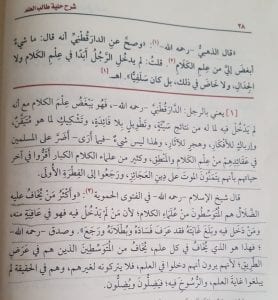 شرح حلية طالب العلم
٢٨
«قال الذهبي -رحمه الله-(١): «وصحَّ عن الدارقُطْنِيِّ أنه قال: ما شيءٌ
أبغضَ إليَّ من علمِ الكلامِ(٢) قلتُ: لم يدخلِ الرَّجُلُ أبدًا في علمِ الكلامِ ولا
الجدالِ، ولا خاضَ في ذلك، بل كان سَلَفِيًّا» اهـ.
[١] يعني بالرجل: الدَّارَقُطْنِيَّ -رحمه الله-، فهو يُبْغِضُ عِلْمَ الكَلَامِ مع أنه
لم يَدْخُلْ فيه لما له من نتائجَ سيِّئةٍ، وتطويلٍ بلا فائدةٍ، وتَشْكِيكٍ لما هو مُتَيَقَّنٌ،
وإرباكٍ للأفكارِ، وهجرٍ للآثارِ، ولهذا ليس شيءٌ -فيما أَرَى- أضرَّ على المسلمين
في عقائدِهِم مِنْ عِلْمِ الكَلَامِ والمَنْطِقِ، وكثيرٌ من علماءِ الكلامِ الكبارِ أَقَرُّوا في آخرِ
حياتِهم بأنهم يتمنَّوْنَ الموتَ على دينِ العجائزِ، ورَجَعُوا إلى الفِطْرَةِ الأُولَى.
قال شيخ الإسلام -رحمه الله- في الفتوى الحموية(٣): «وأكثرُ مَنْ يُخَافُ عليه
الضَّلالُ هم المُتَوَسِّطُونَ مِنْ عُلَمَاءِ الكَلَامِ؛ لأن مَنْ لم يَدْخُلْ فيه فهو في عافيةٍ منه،
ومَنْ دَخَلَ فيه وبَلَغَ غَايَتَهُ فقد عَرَفَ فَسَادَهُ وبُطْلَانَهُ ورَجَعَ». وصدق -رحمه الله-
؛ فهذا هو الذي يُخَافُ في كل علم، يُخَافُ من المُتَوَسِّطِينَ الذين هم في عَرْضِ
الطَّرِيقِ؛ لأنهم يرون أنهم دخلوا في العلم، فلا يتركونه لغيرهم، وهم في الحقيقة لم
يبلغوا غايةَ العلمِ، والرُّسُوخَ فيه؛ فيَضِلُّونَ ويُضِلُّونَ.